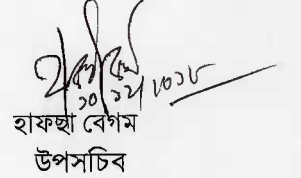 ১০/১২/২০১৮
হাফছা বেগম
উপসচিব